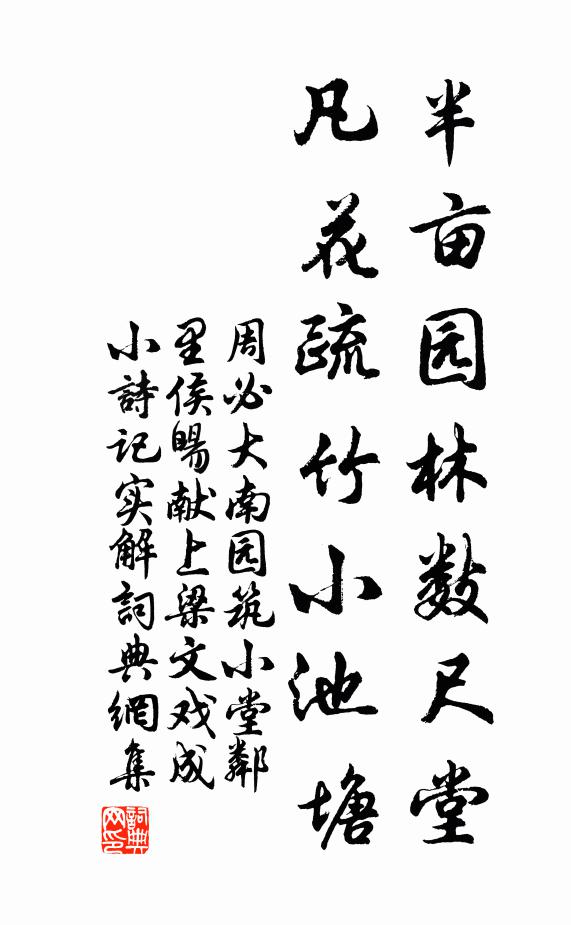 半亩园林数尺堂
凡花疏竹小池塘
周必大南园筑小堂鄰
里侯暘献上梁文戏成
小詩记实解詞典網集
詞典网印